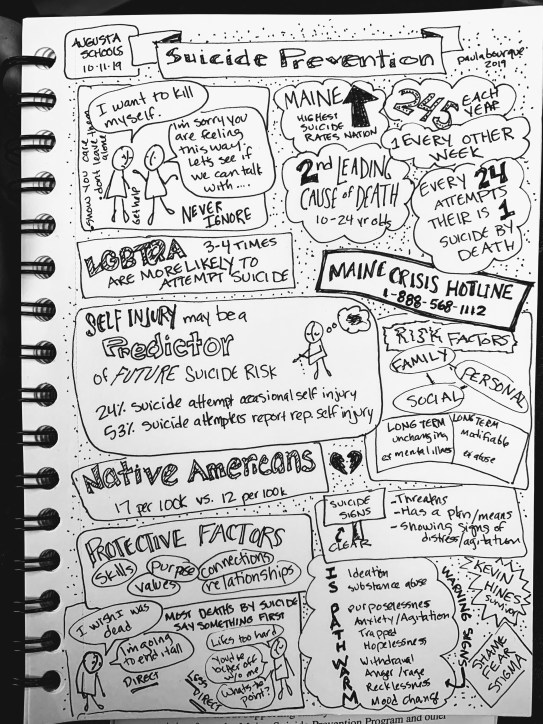 AUGUSTA
SCHOOLS
10.11.19
Suicide Prevention
paulabourque
2019
I want to kill
myself.
I'm sorry you
are feeling
this way.
Lets see if
we can talk
with....
show you care
don't leave them
alone
Get help
NEVER
IGNORE
MAINE
HIGHEST
SUICIDE
RATES NATION
245 EACH
YEAR
1 EVERY OTHER
WEEK
2nd LEADING
CAUSE of DEATH
10-24 yr olds
EVERY 24
ATTEMPTS
THEIR IS 1
SUICIDE BY
DEATH
LGBTQA 3-4 TIMES
ARE MORE LIKELY TO
ATTEMPT SUICIDE
MAINE CRISIS HOTLINE
1-888-568-1112
SELF INJURY may be a
Predictor
of FUTURE SUICIDE RISK
24% suicide attempt occasional self injury
53% suicide attempters report rep. self injury
RISK FACTORS
FAMILY
PERSONAL
SOCIAL
LONG TERM
unchanging
or mental illness
LONG TERM
modifiable
or abuse
Native Americans
17 per 100k vs. 12 per 100k
SUICIDE
SIGNS
CLEAR
-Threatens
-Has a plan/means
-showing signs of
distress/agitation
PROTECTIVE FACTORS
Skills
Purpose
values
connections
relationships
IS PATH WARM
Ideation
substance abuse
purposelessness
Anxiety/Agitation
Trapped
Hopelessness
Withdrawal
Anger/rage
Recklessness
Mood change
WARNING SIGNS
KEVIN
HINES
survivor
SHAME
FEAR
STIGMA
I WISH I WAS
dead
MOST DEATHS BY SUICIDE
SAY SOMETHING FIRST
I'm going
to end it all
DIRECT
Less
DIRECT
Life's too hard
You'd be
better off
w/o me
What's the
point?
Suicide Prevention Program and other